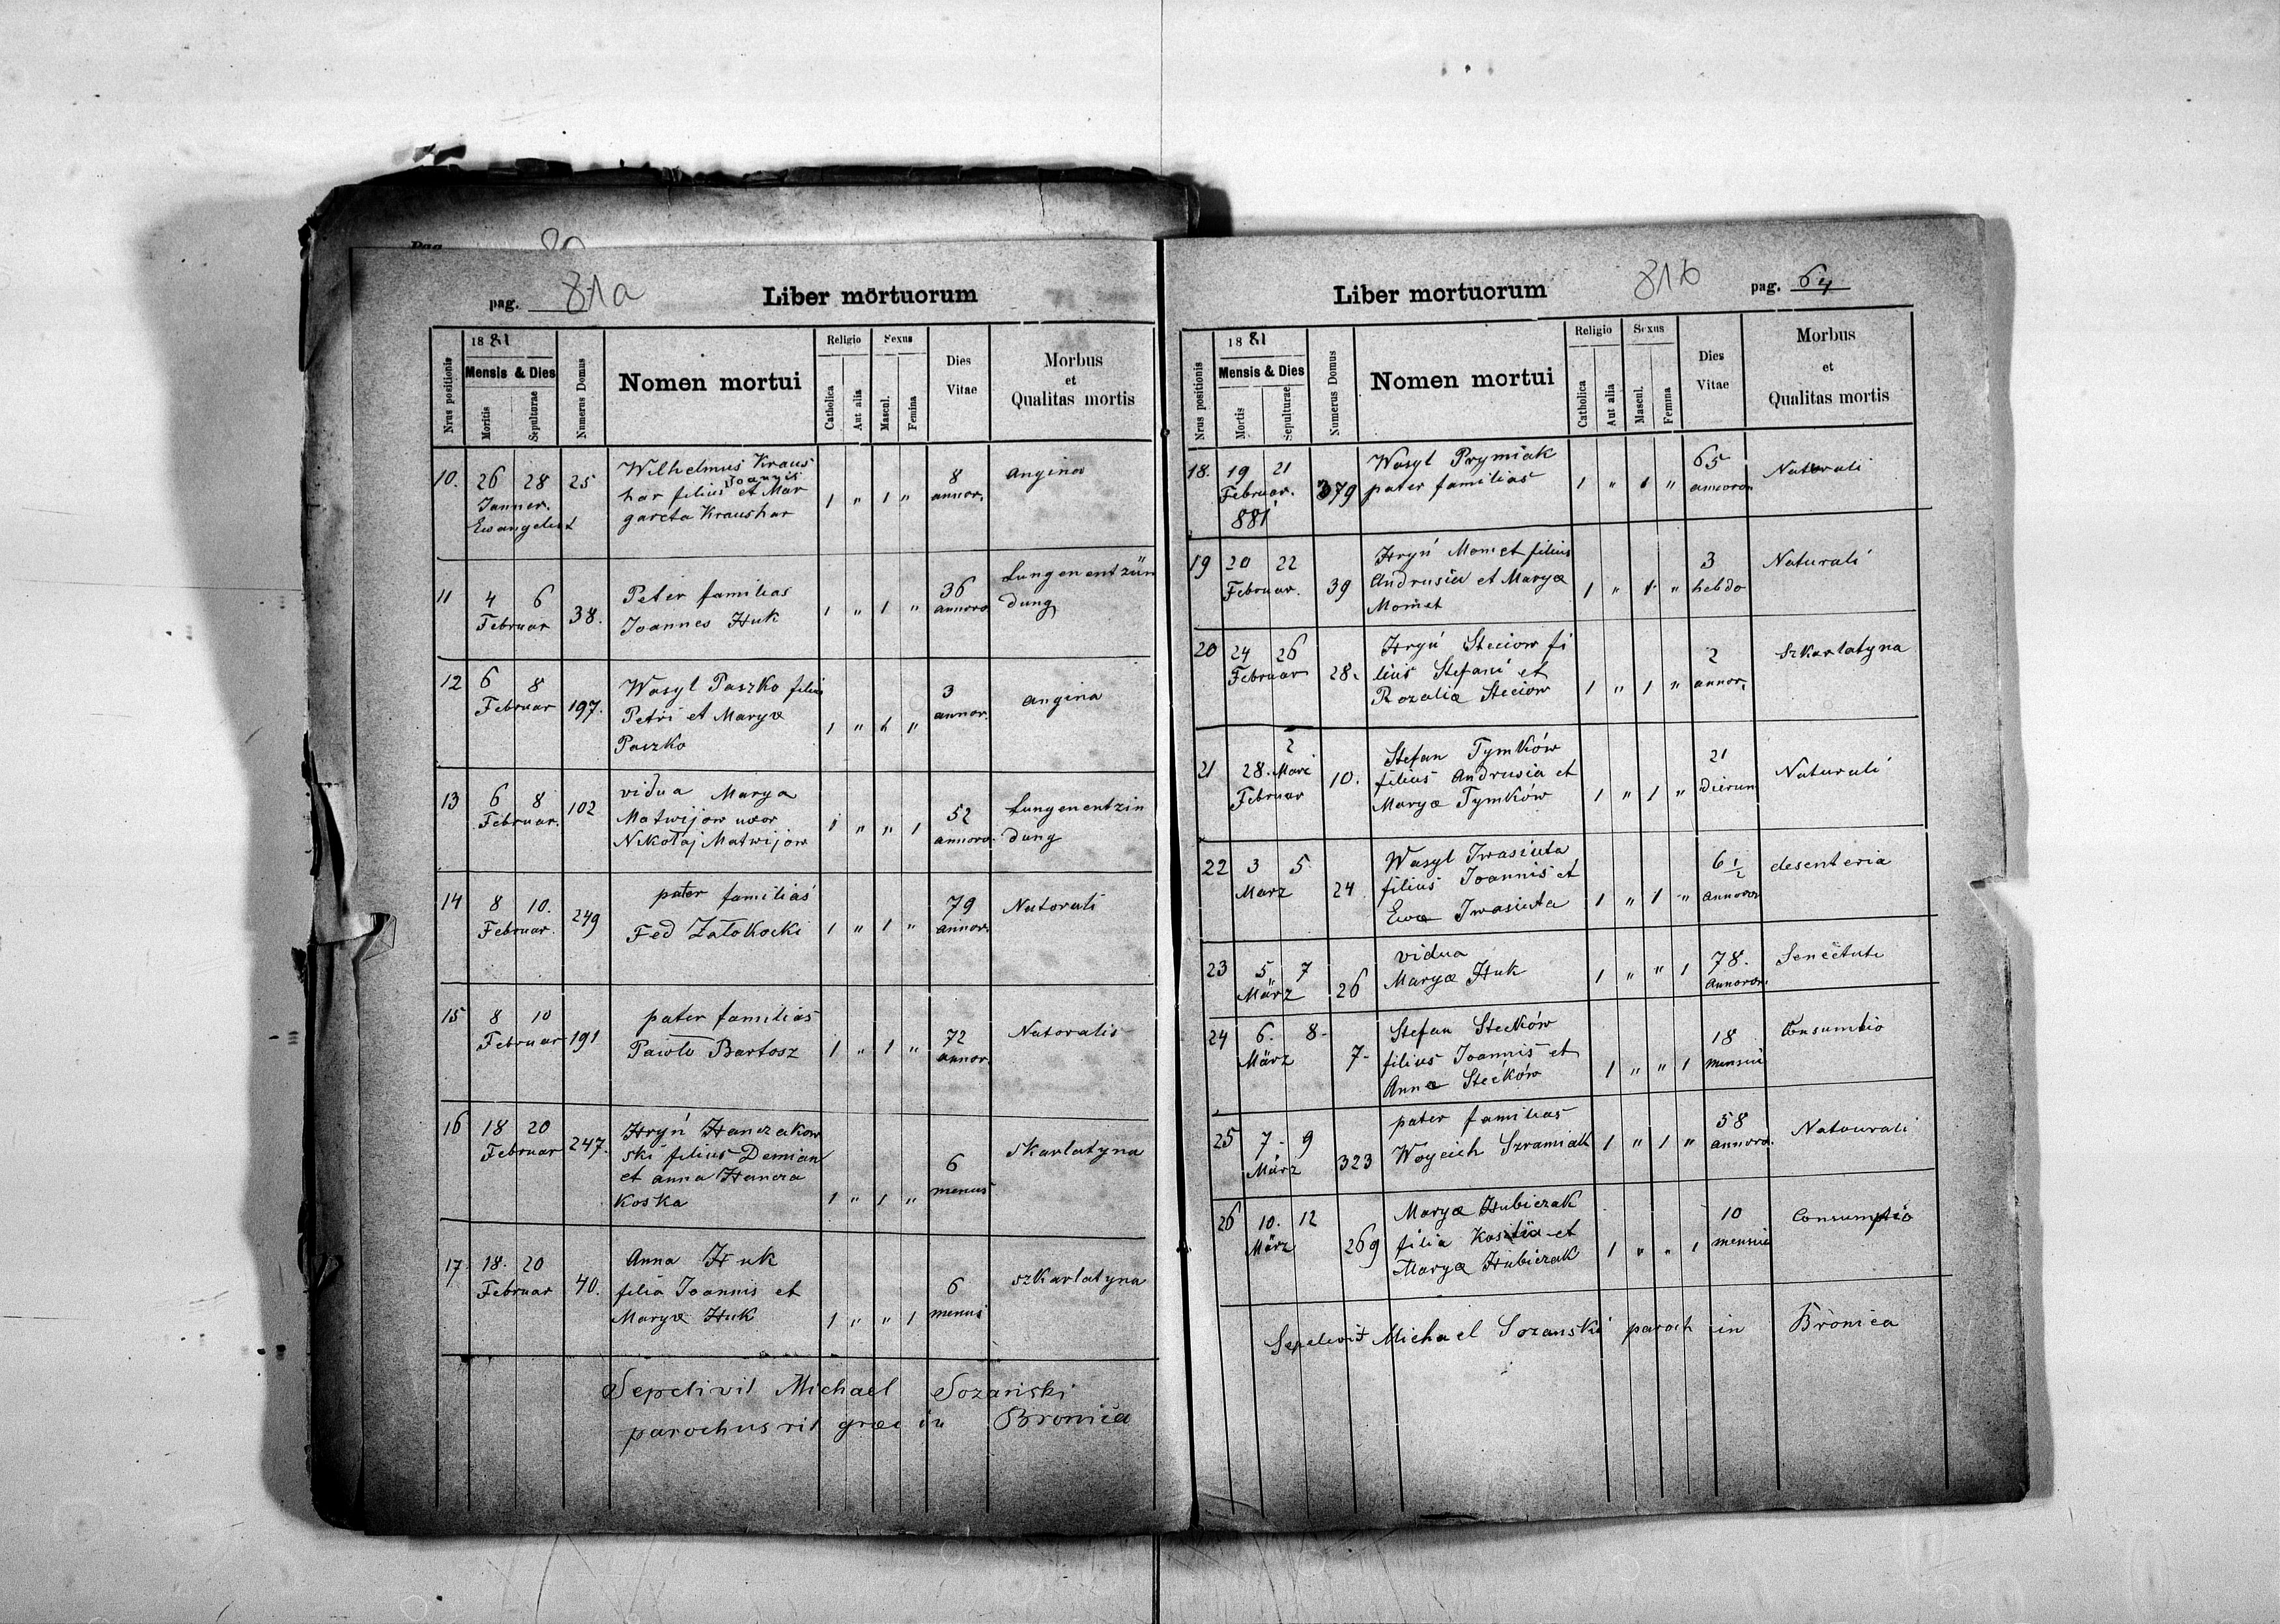 pag. 81a Liber mortuorum
Nrus positionis
1881
Mensis & Dies
Mortis
Sepulturae
Numerus Domus
Nomen mortui
Religio
Catholica
Aut alia
Sexus
Mascul.
Femina
Dies
Vitae
Morbus
et
Qualitas mortis
10. 26 28 25 Wilhelmus Kraus
Joannis
har filius et Mar 1 " 1 " 8 angina
Janner. gareta Kraushar annor.
Ewangelist
11 4 6 38. Peter familias 36 Lungenentzün
Februar Joannes Huk 1 " 1 " annoro dung
12 6 8 197. Wasyl Paszko filius 3 angina
Februar Petri et Marya 1 " 1 " annor.
Paszko
13 6 8 102 vidua Marya 52 Lungenentzin
Februar. Matwijow uxor 1 " " 1 annoro. dung
Nikołaj Matwijow
14 8 10. 249 pater familias 79 Natorali
Februar. Fed Załokocki 1 " 1 " annor.
15 8 10 191 pater familias 72 Natoralis
Februar Pawlo Bartosz 1 " 1 " annor.
16 18 20 247. Hryń Hanczakow Skarlatyna
Februar ski filius Demian 6
et anna Hancza menus
koska 1 " 1 "
17 18. 20 40. Anna Huk 6 szkarlatyna
Februar filia Joannis et menus
Marya Huk 1 " " 1
Sepelivit Michael Sozański
parochus rit graec in Bronica
Liber mortuorum 81b pag. 64
Nrus positionis
1881
Mensis & Dies
Mortis
Sepulturae
Numerus Domus
Nomen mortui
Religio
Catholica
Aut alia
Sexus
Mascul.
Femina
Dies
Vitae
Morbus
et
Qualitas mortis
18. 19 21 379 Wasyl Prymiak 65 Naturali
Februar. pater familias 1 " 1 "
881
19 20 22 39 Hryń Momet filius 3 Naturali
Februar. Andrusia et Marya 1 " 1 " hebdo
Momet
20 24 26 28. Hryń Steciow fi 2 Szkarlatyna
Februar lius Stefani et annor.
Rozalia Steciow 1 " 1 "
21 28. 2 10. Stefan Tymków 21 Naturali
Februar filius Andrusia et dierum
Marya Tymków 1 " 1 "
22 3 5 24 Wasyl Iwasiuta 6 1/2 desenteria
Marz filius Joannis et annoror
Ewa Iwasiuta 1 " 1 "
23 5 7 26 vidua 78. Senectute
März Marya Huk 1 " " 1 annoror.
24 6. 8- 7- Stefan Stecków 18 Consumbio
März filius Joannis et mensiu
Anna Stecków 1 " " 1
25 7- 9 323 pater familias 58 Natourali
März Woycich Szramiak 1 " 1 " annoro.
26 10. 12 269 Marya Hubiczak 10 Consumptio
März filia Kostia et mensiu
Marya Hubiczak 1 " " 1
Sepelivit Michael Sozański paroch in Bronica